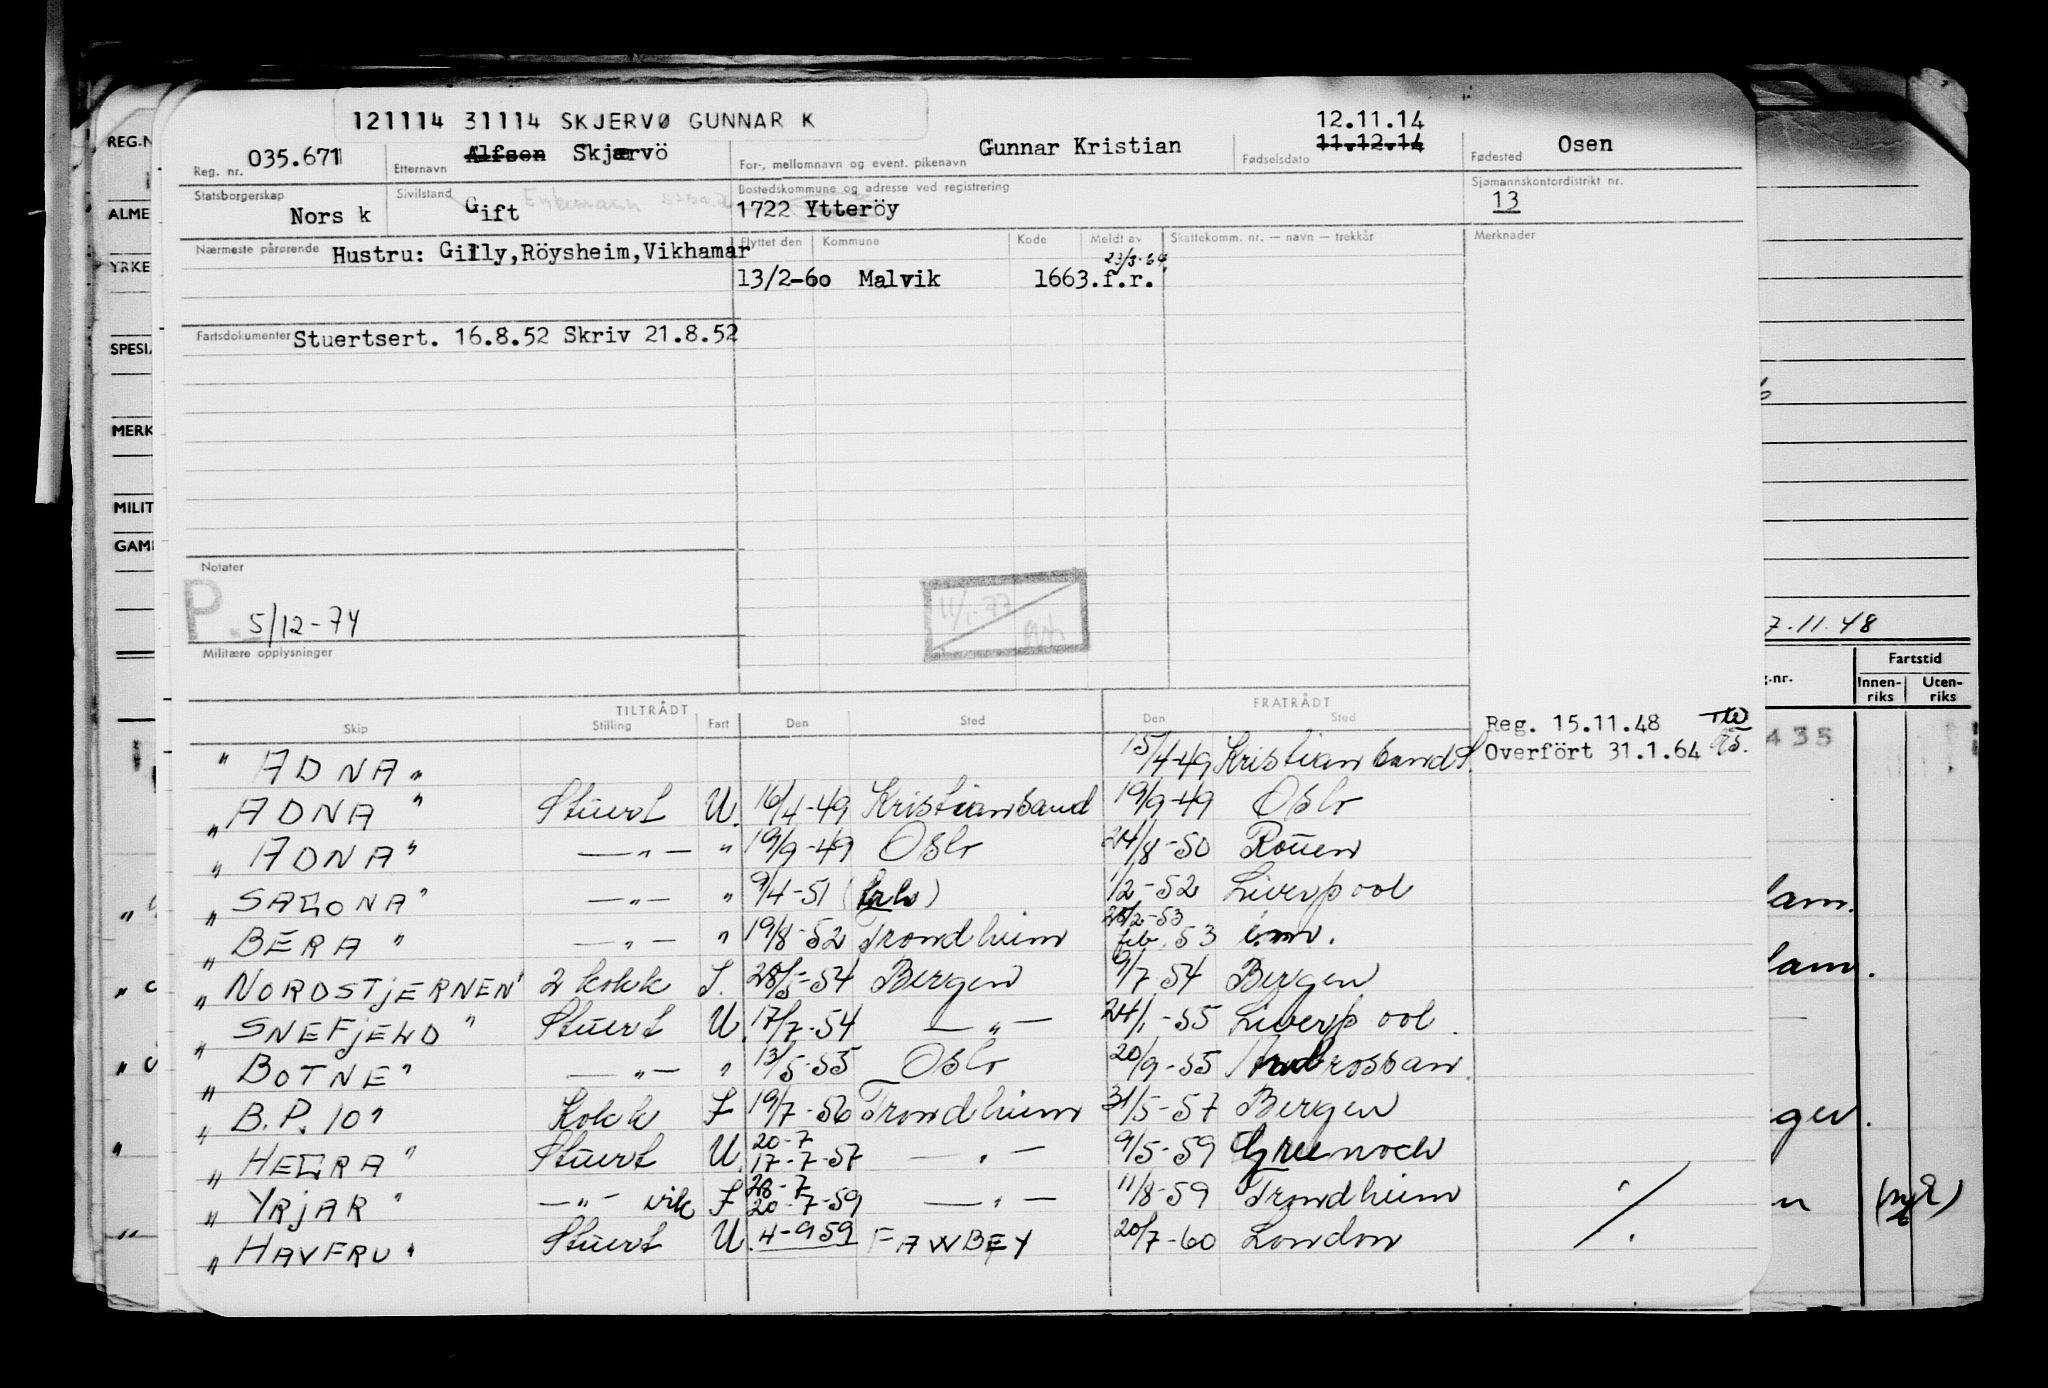 121114 31114 SKJERVØ GUNNAR K
Reg. nr. 035.671 Etternavn Alfsen Skjærvö For-, mellomnavn og event. pikenavn Gunnar Kristian Fødselsdato 12.11.14 11.12.14 Fødested Osen
Statsborgerskap Norsk Sivilstand Gift Bostedskommune og adresse ved registrering 1722 Ytteröy Sjømannskontordistrikt nr. 13
Nærmeste pårørende Hustru: Gilly, Röysheim, Vikhamar Flyttet den Kommune Kode Meldt av Skattekomm. nr. — navn — trekkår Merknader
23/3-64
13/2-60 Malvik 1663. f.r.
Fartsdokumenter Stuertsert. 16.8.52 Skriv 21.8.52
Notater
P. 5/12-74
11/1-77
Militære opplysninger
TILTRÅDT FRATRÅDT
Skip Stilling Fart Den Sted Den Sted
Reg. 15.11.48
Overfört 31.1.64
" ADNA" 15/4-49 Kristiansand S.
"ADNA" Stuert U. 16/4-49 Kristiansand 19/9-49 Oslo
"ADNA" —"— " 19/9-49 Oslo 24/8-50 Rouen
"SAGONA" —"— " 9/4-51 1/2-52 Liverpool
"BERA" —"— " 19/8-52 Trondheim feb. 53
"NORDSTJERNEN" 2 kokk 28/5-54 Bergen 9/7-54 Bergen
"SNEFJELD" Stuert U. 17/7-54 —"— 24/1-55 Liverpool
"BOTNE" —"— " 13/5-55 Oslo 20/9-55
"B.P. 10" Kokk 19/7-56 Trondheim 31/5-57 Bergen
"HEGRA" Stuert U. 20-7 17-7-57 —"— 9/5-59 Greenock
"YRJAR" —"— vik 20-7-59 —"— 11/8-59 Trondheim
"HAVFRU" Stuert U. 4-9 59 FAWBEY 20/7-60 London
REG.N
ALME
YRKE
SPESI
MERK
MILIT
GAM
7.11.48
Fartstid
g.-nr. Innen-riks Uten-riks
435
lam.
lam.